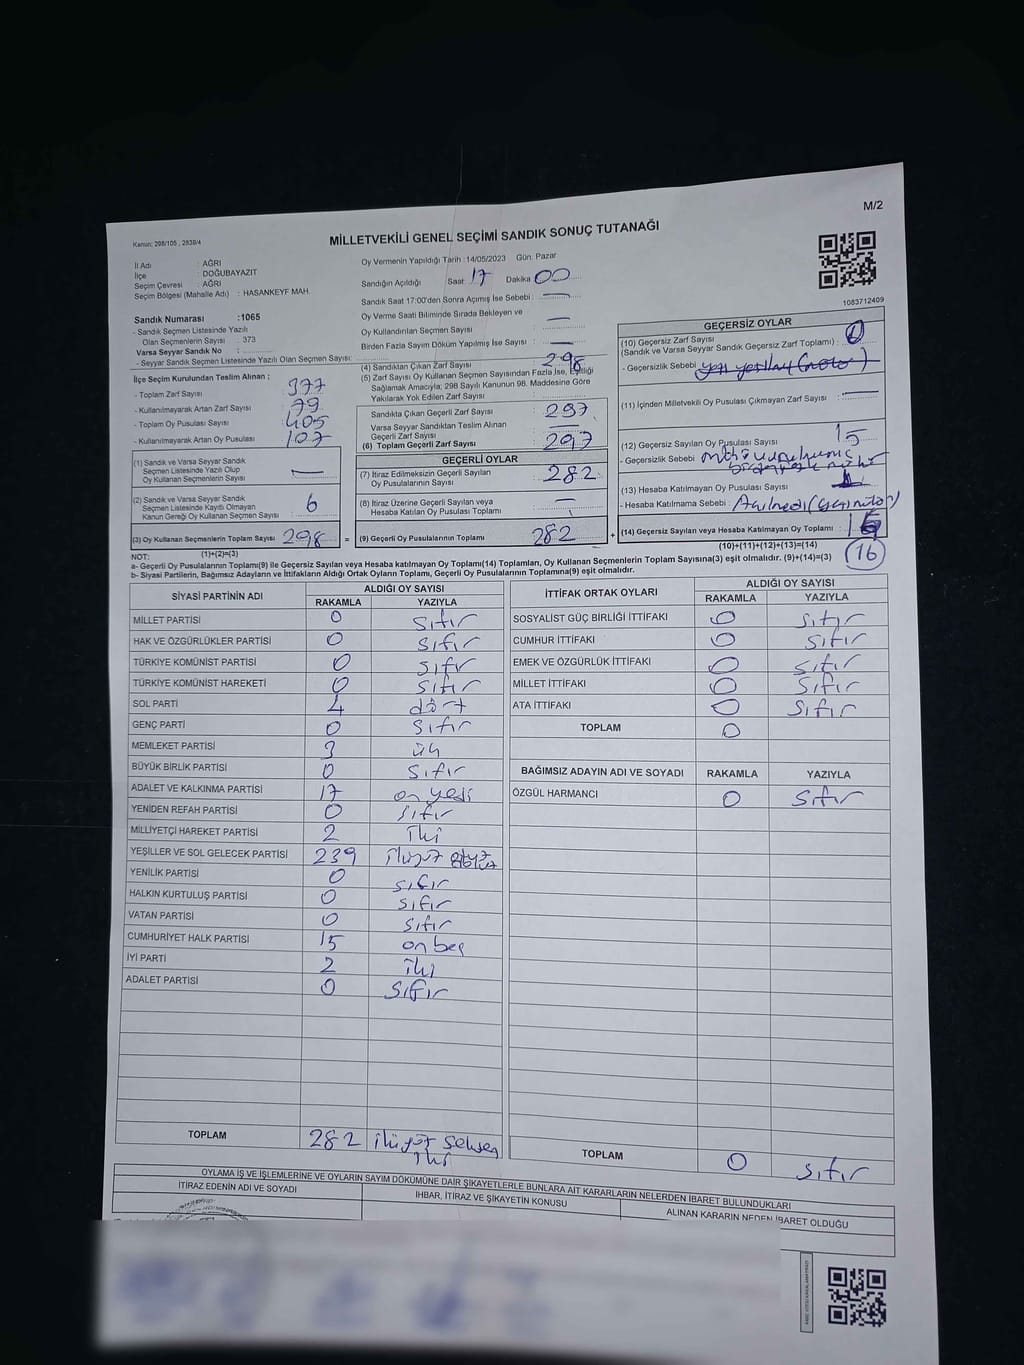 M/2
Kanun: 298/105 , 2839/4
MİLLETVEKİLİ GENEL SEÇİMİ SANDIK SONUÇ TUTANAĞI
İl Adı : AĞRI
İlçe : DOĞUBAYAZIT
Seçim Çevresi : AĞRI
Seçim Bölgesi (Mahalle Adı) : HASANKEYF MAH.
Oy Vermenin Yapıldığı Tarih : 14/05/2023 Gün. Pazar
Sandığın Açıldığı Saat 17 Dakika 00
Sandık Saat 17:00'den Sonra Açımış İse Sebebi : —
Oy Verme Saati Bitiminde Sırada Bekleyen ve
Oy Kullandırılan Seçmen Sayısı —
Birden Fazla Sayım Döküm Yapılmış İse Sayısı : —
1083712409
Sandık Numarası :1065
- Sandık Seçmen Listesinde Yazılı
Olan Seçmenlerin Sayısı : 373
Varsa Seyyar Sandık No :
- Seyyar Sandık Seçmen Listesinde Yazılı Olan Seçmen Sayısı:
İlçe Seçim Kurulundan Teslim Alınan :
- Toplam Zarf Sayısı 377
- Kullanılmayarak Artan Zarf Sayısı 79
- Toplam Oy Pusulası Sayısı 405
- Kullanılmayarak Artan Oy Pusulası 107
(1) Sandık ve Varsa Seyyar Sandık
Seçmen Listesinde Yazılı Olup
Oy Kullanan Seçmenlerin Sayısı —
(2) Sandık ve Varsa Seyyar Sandık
Seçmen Listesinde Kayıtlı Olmayan
Kanun Gereği Oy Kullanan Seçmen Sayısı 6
(3) Oy Kullanan Seçmenlerin Toplam Sayısı 298 =
(1)+(2)=(3)
(4) Sandıktan Çıkan Zarf Sayısı 298
(5) Zarf Sayısı Oy Kullanan Seçmen Sayısından Fazla İse, Eşitliği
Sağlamak Amacıyla; 298 Sayılı Kanunun 98. Maddesine Göre
Yakılarak Yok Edilen Zarf Sayısı
Sandıkta Çıkan Geçerli Zarf Sayısı 297
Varsa Seyyar Sandıktan Teslim Alınan
Geçerli Zarf Sayısı —
(6) Toplam Geçerli Zarf Sayısı 297
GEÇERLİ OYLAR
(7) İtiraz Edilmeksizin Geçerli Sayılan
Oy Pusulalarının Sayısı 282
(8) İtiraz Üzerine Geçerli Sayılan veya
Hesaba Katılan Oy Pusulası Toplamı —
(9) Geçerli Oy Pusulalarının Toplamı 282 +
GEÇERSİZ OYLAR
(10) Geçersiz Zarf Sayısı
(Sandık ve Varsa Seyyar Sandık Geçersiz Zarf Toplamı) :
- Geçersizlik Sebebi
(11) İçinden Milletvekili Oy Pusulası Çıkmayan Zarf Sayısı —
(12) Geçersiz Sayılan Oy Pusulası Sayısı 15
- Geçersizlik Sebebi
(13) Hesaba Katılmayan Oy Pusulası Sayısı
- Hesaba Katılmama Sebebi
(14) Geçersiz Sayılan veya Hesaba Katılmayan Oy Toplamı 16
(10)+(11)+(12)+(13)=(14)
16
NOT:
a- Geçerli Oy Pusulalarının Toplamı(9) ile Geçersiz Sayılan veya Hesaba katılmayan Oy Toplamı(14) Toplamları, Oy Kullanan Seçmenlerin Toplam Sayısına(3) eşit olmalıdır. (9)+(14)=(3)
b- Siyasi Partilerin, Bağımsız Adayların ve İttifakların Aldığı Ortak Oyların Toplamı, Geçerli Oy Pusulalarının Toplamına(9) eşit olmalıdır.
SİYASİ PARTİNİN ADI ALDIĞI OY SAYISI
RAKAMLA YAZIYLA
MİLLET PARTİSİ 0 sıfır
HAK VE ÖZGÜRLÜKLER PARTİSİ 0 sıfır
TÜRKİYE KOMÜNİST PARTİSİ 0 sıfır
TÜRKİYE KOMÜNİST HAREKETİ 0 sıfır
SOL PARTİ 4 dört
GENÇ PARTİ 0 sıfır
MEMLEKET PARTİSİ 3 üç
BÜYÜK BİRLİK PARTİSİ 0 sıfır
ADALET VE KALKINMA PARTİSİ 17 on yedi
YENİDEN REFAH PARTİSİ 0 sıfır
MİLLİYETÇİ HAREKET PARTİSİ 2 iki
YEŞİLLER VE SOL GELECEK PARTİSİ 239 ikiyüz
YENİLİK PARTİSİ 0 sıfır
HALKIN KURTULUŞ PARTİSİ 0 sıfır
VATAN PARTİSİ 0 sıfır
CUMHURİYET HALK PARTİSİ 15 on beş
İYİ PARTİ 2 iki
ADALET PARTİSİ 0 sıfır
TOPLAM 282 ikiyüz seksen
iki
İTTİFAK ORTAK OYLARI ALDIĞI OY SAYISI
RAKAMLA YAZIYLA
SOSYALİST GÜÇ BİRLİĞİ İTTİFAKI 0 sıfır
CUMHUR İTTİFAKI 0 sıfır
EMEK VE ÖZGÜRLÜK İTTİFAKI 0 sıfır
MİLLET İTTİFAKI 0 sıfır
ATA İTTİFAKI 0 sıfır
TOPLAM 0
BAĞIMSIZ ADAYIN ADI VE SOYADI RAKAMLA YAZIYLA
ÖZGÜL HARMANCI 0 sıfır
TOPLAM 0 sıfır
OYLAMA İŞ VE İŞLEMLERİNE VE OYLARIN SAYIM DÖKÜMÜNE DAİR ŞİKAYETLERLE BUNLARA AİT KARARLARIN NELERDEN İBARET BULUNDUKLARI
İTİRAZ EDENİN ADI VE SOYADI İHBAR, İTİRAZ VE ŞİKAYETİN KONUSU ALINAN KARARIN NEDEN İBARET OLDUĞU